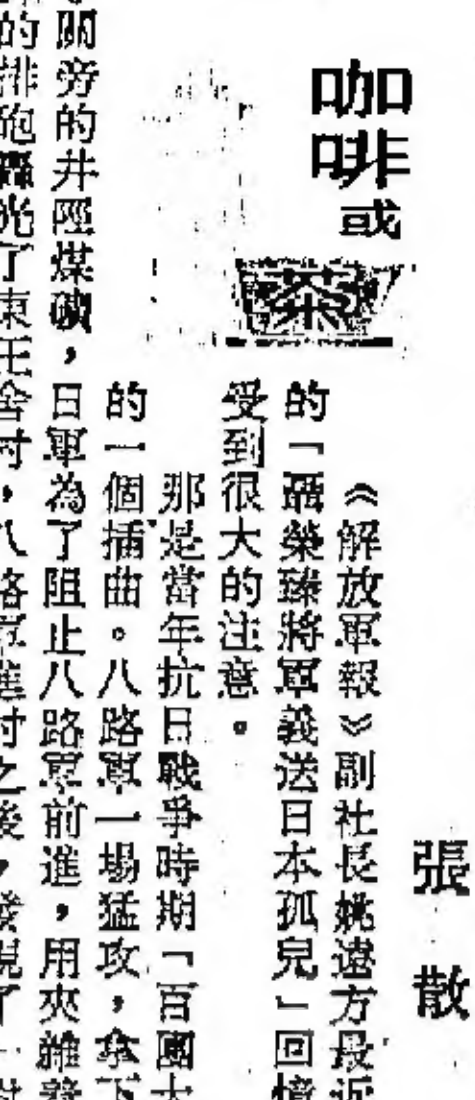 咖啡或茶
張散
《解放軍報》副社長姚遠方最近
的「聶榮臻將軍義送日本孤兒」回憶
受到很大的注意。
那是當年抗日戰爭時期「百團大
的一個插曲。八路軍一場猛攻,拿下
關旁的井陘煤礦,日軍為了阻止八路軍前進,用夾雜
的排砲轟光了東王舍村,八路軍進村之後,發現了一